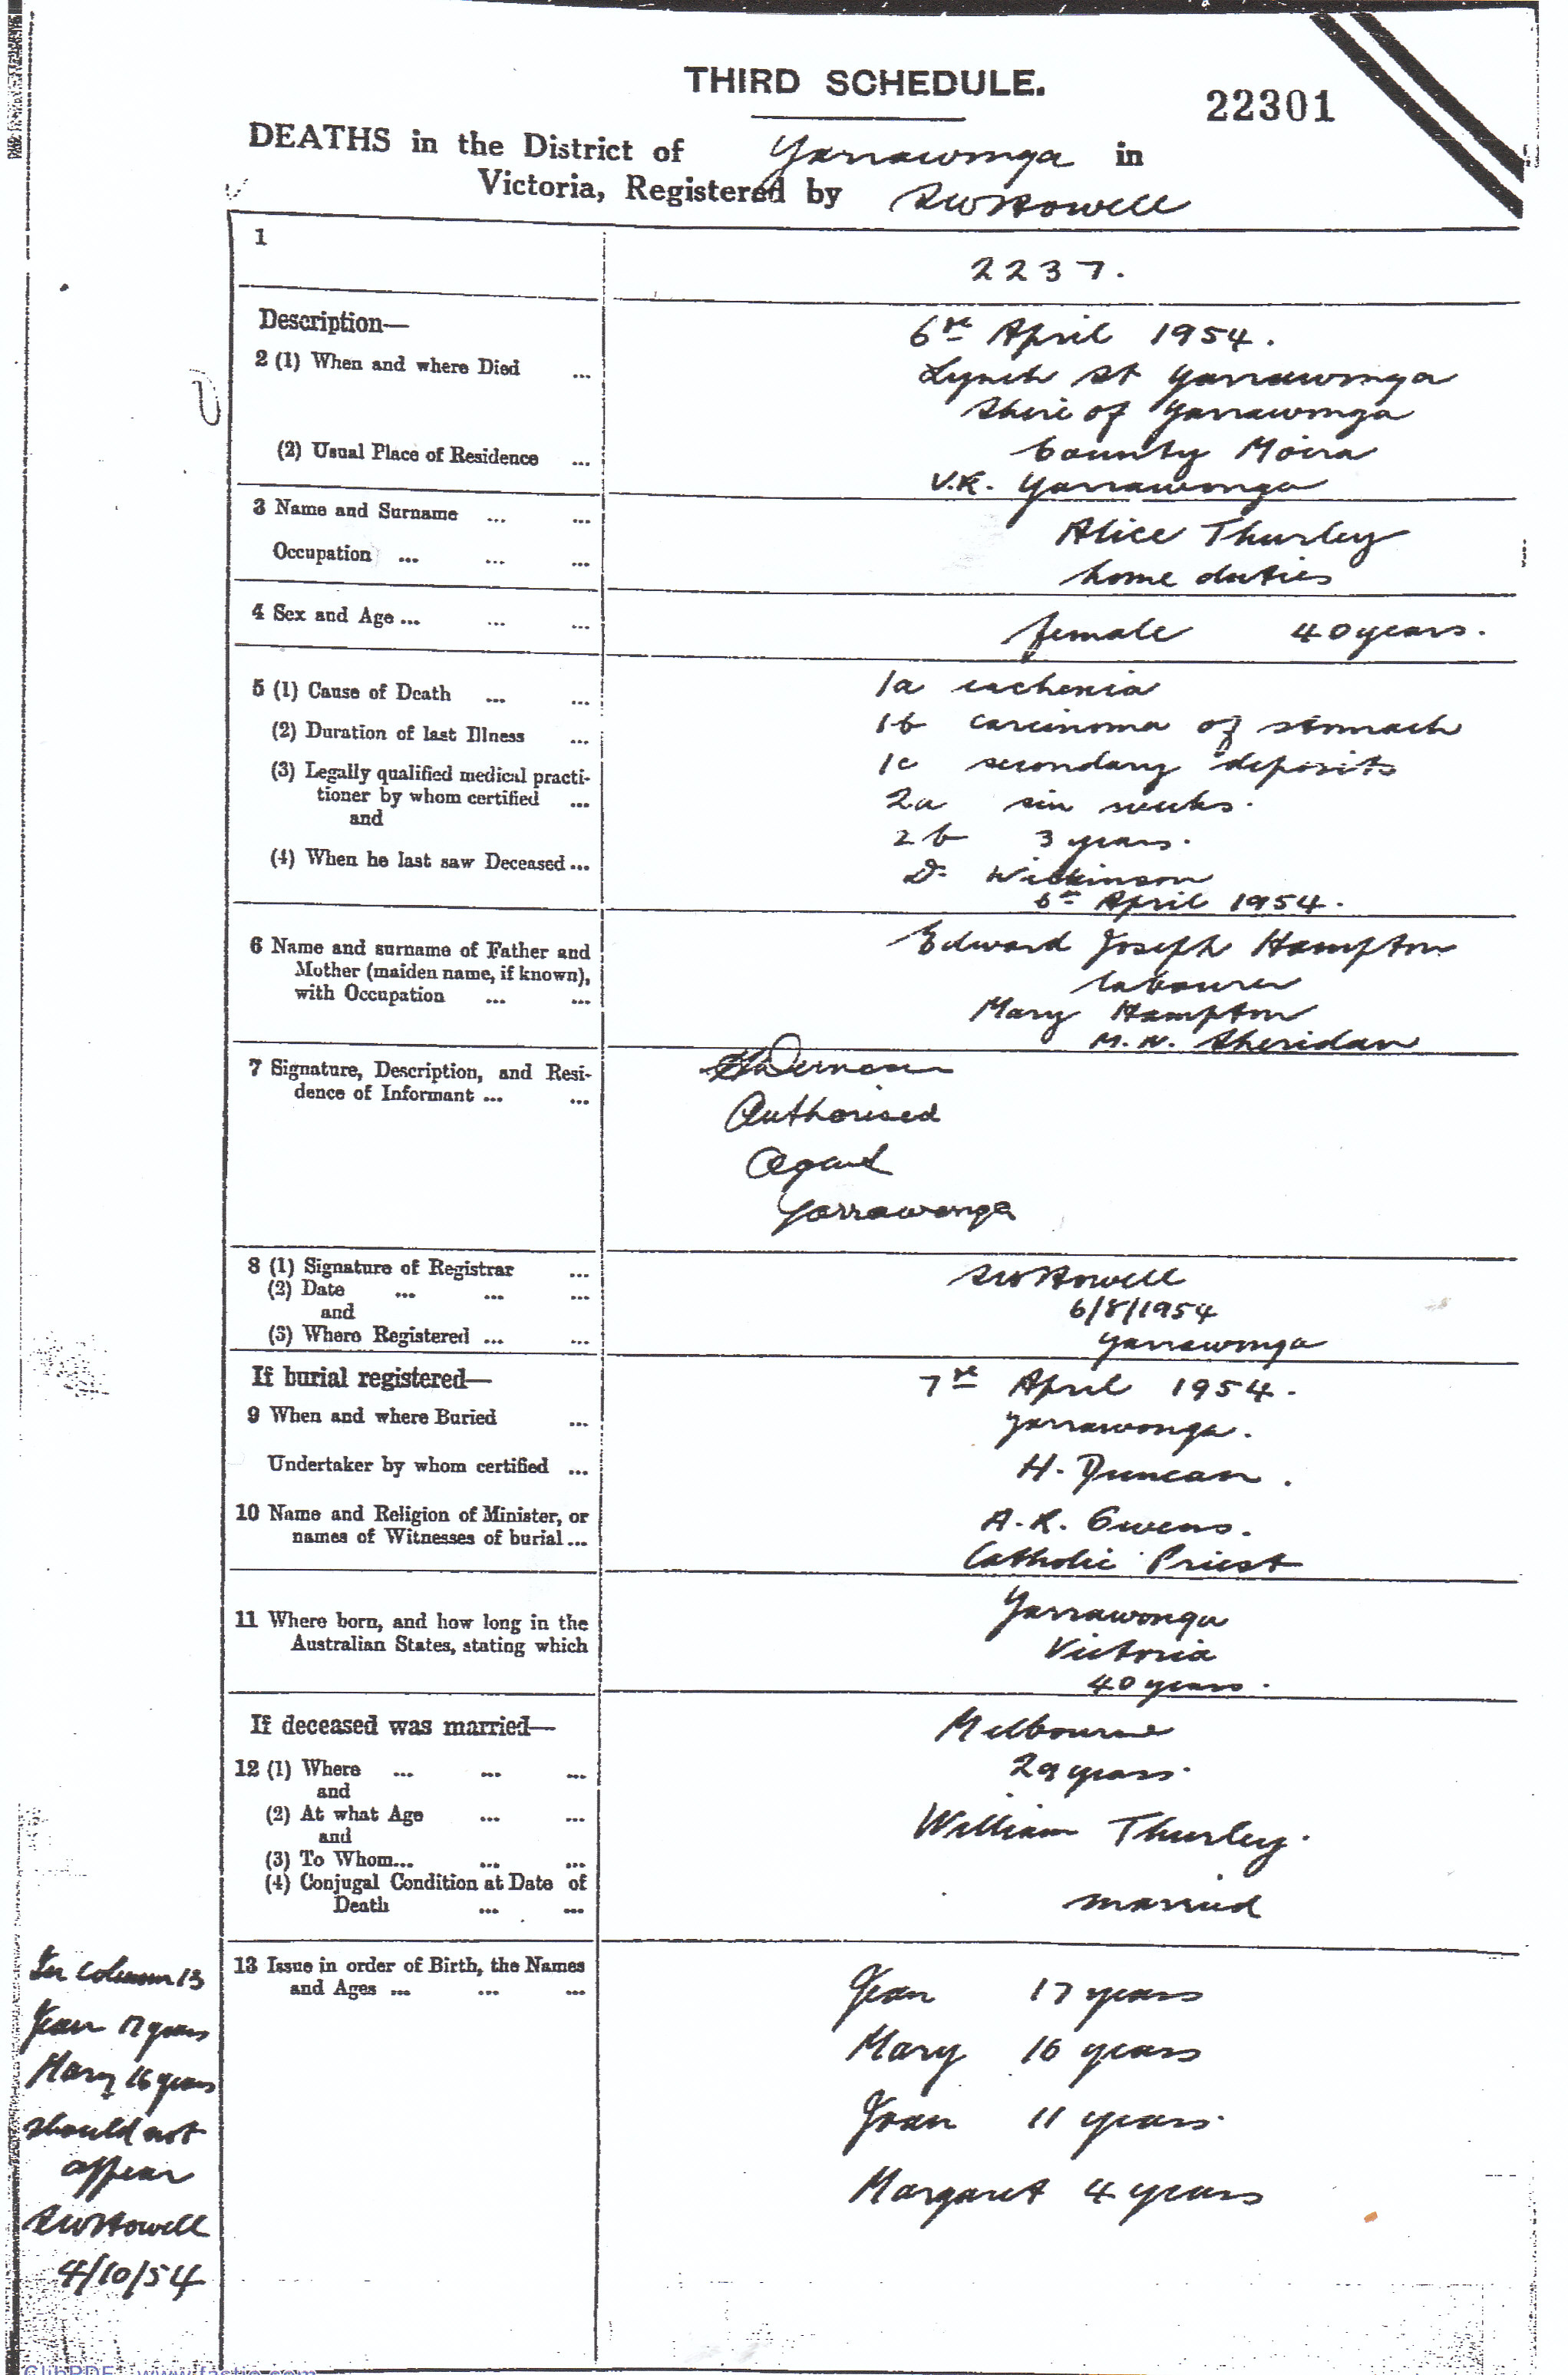 THIRD SCHEDULE.
22301
DEATHS in the District of Yarrawonga in
Victoria, Registered by SWHowell
1
2237.
Description—
2 (1) When and where Died ...
6th April 1954.
Lynch St Yarrawonga
Shire of Yarrawonga
(2) Usual Place of Residence ...
County Moira
V.K. Yarrawonga
3 Name and Surname ... ...
Alice Thurley
Occupation ... ... ...
home duties
4 Sex and Age ... ... ...
female 40 years.
5 (1) Cause of Death ... ...
1a cachexia
(2) Duration of last Illness ...
1b carcinoma of stomach
(3) Legally qualified medical practi-
tioner by whom certified ...
and
1c secondary deposits
2a six weeks.
2b 3 years.
(4) When he last saw Deceased ...
Dr Wilkinson
6th April 1954.
6 Name and surname of Father and
Mother (maiden name, if known),
with Occupation ... ...
Edward Joseph Hampton
labourer
Mary Hampton
M.N. Sheridan
7 Signature, Description, and Resi-
dence of Informant ... ...
Authorised
Agent
Yarrawonga
8 (1) Signature of Registrar ...
(2) Date ... ... ...
and
(3) Where Registered ... ...
SWHowell
6/8/1954
Yarrawonga
If burial registered—
9 When and where Buried ...
7th April 1954.
Yarrawonga.
Undertaker by whom certified ...
H. Duncan.
10 Name and Religion of Minister, or
names of Witnesses of burial ...
A.K. Owens.
Catholic Priest
11 Where born, and how long in the
Australian States, stating which
Yarrawonga
Victoria
40 years.
If deceased was married—
12 (1) Where ... ... ...
and
(2) At what Age ... ...
and
(3) To Whom... ... ...
(4) Conjugal Condition at Date of
Death ... ...
Melbourne
29 years.
William Thurley.
married
13 Issue in order of Birth, the Names
and Ages ... ... ...
Jean 17 years
Mary 16 years
Joan 11 years.
Margaret 4 years
In column 13
Jean 17 years
Mary 16 years
should not
appear
SWHowell
4/10/54
ClibPDF - www.fastio.com